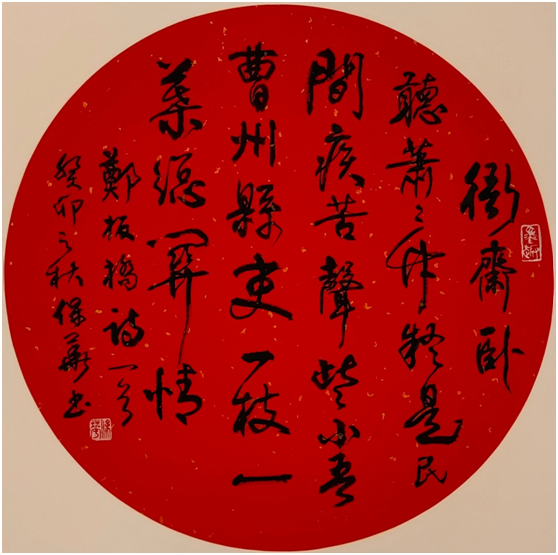 衙齋卧
聽蕭〻竹疑是民
間疾苦聲些小吾
曹州縣吏一枝一
葉總關情
鄭板橋詩一首
癸卯之秋保華書